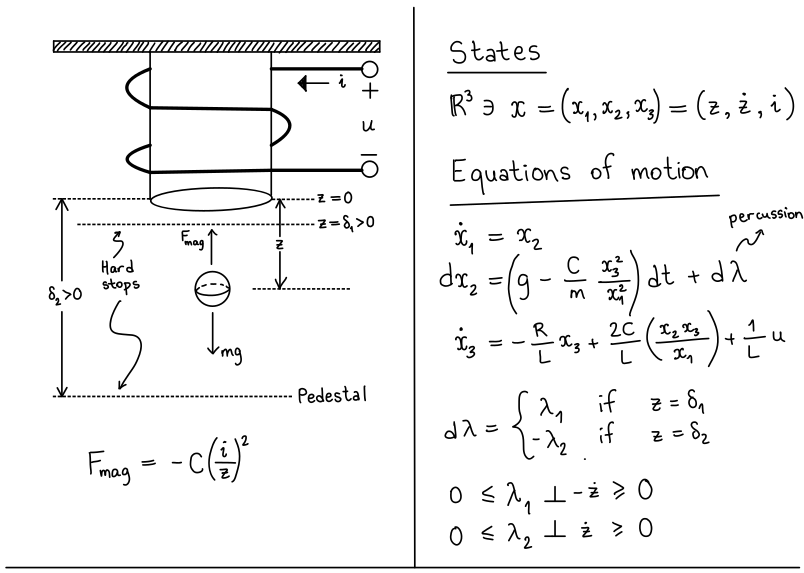 i
+
u
−
z = 0
z = δ₁ > 0
F_mag
z
Hard
stops
δ₂ > 0
mg
Pedestal
F_mag = − C(i/z)²
States
ℝ³ ∋ x = (x₁, x₂, x₃) = (z, ż, i)
Equations of motion
percussion
ẋ₁ = x₂
dx₂ = (g − C/m x₃²/x₁²) dt + dλ
ẋ₃ = − R/L x₃ + 2C/L (x₂x₃/x₁) + 1/L u
dλ = { λ₁ if z = δ₁
−λ₂ if z = δ₂
0 ≤ λ₁ ⊥ −ż ≥ 0
0 ≤ λ₂ ⊥ ż ≥ 0